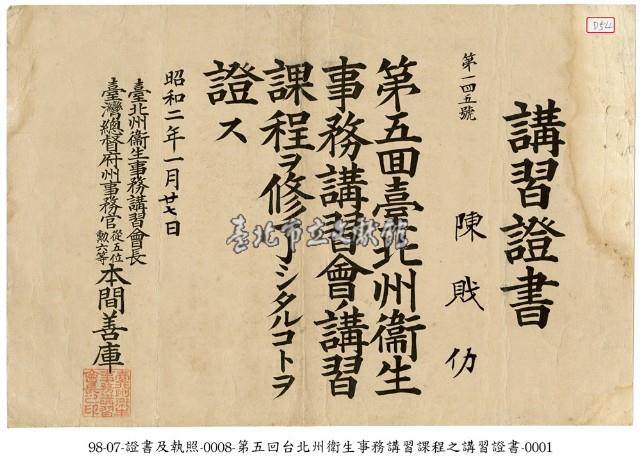 D54
講習證書
第一四五號
陳戝仂
第五回臺北州衞生
事務講習會ノ講習
課程ヲ修了シタルコトヲ
證ス
昭和二年一月廿七日
臺北州衞生事務講習會長
臺灣總督府州事務官從五位勳六等本間善庫
臺北州衞生事務講習會長之印
臺北市立文獻館
98-07-證書及執照-0008-第五回台北州衛生事務講習課程之講習證書-0001